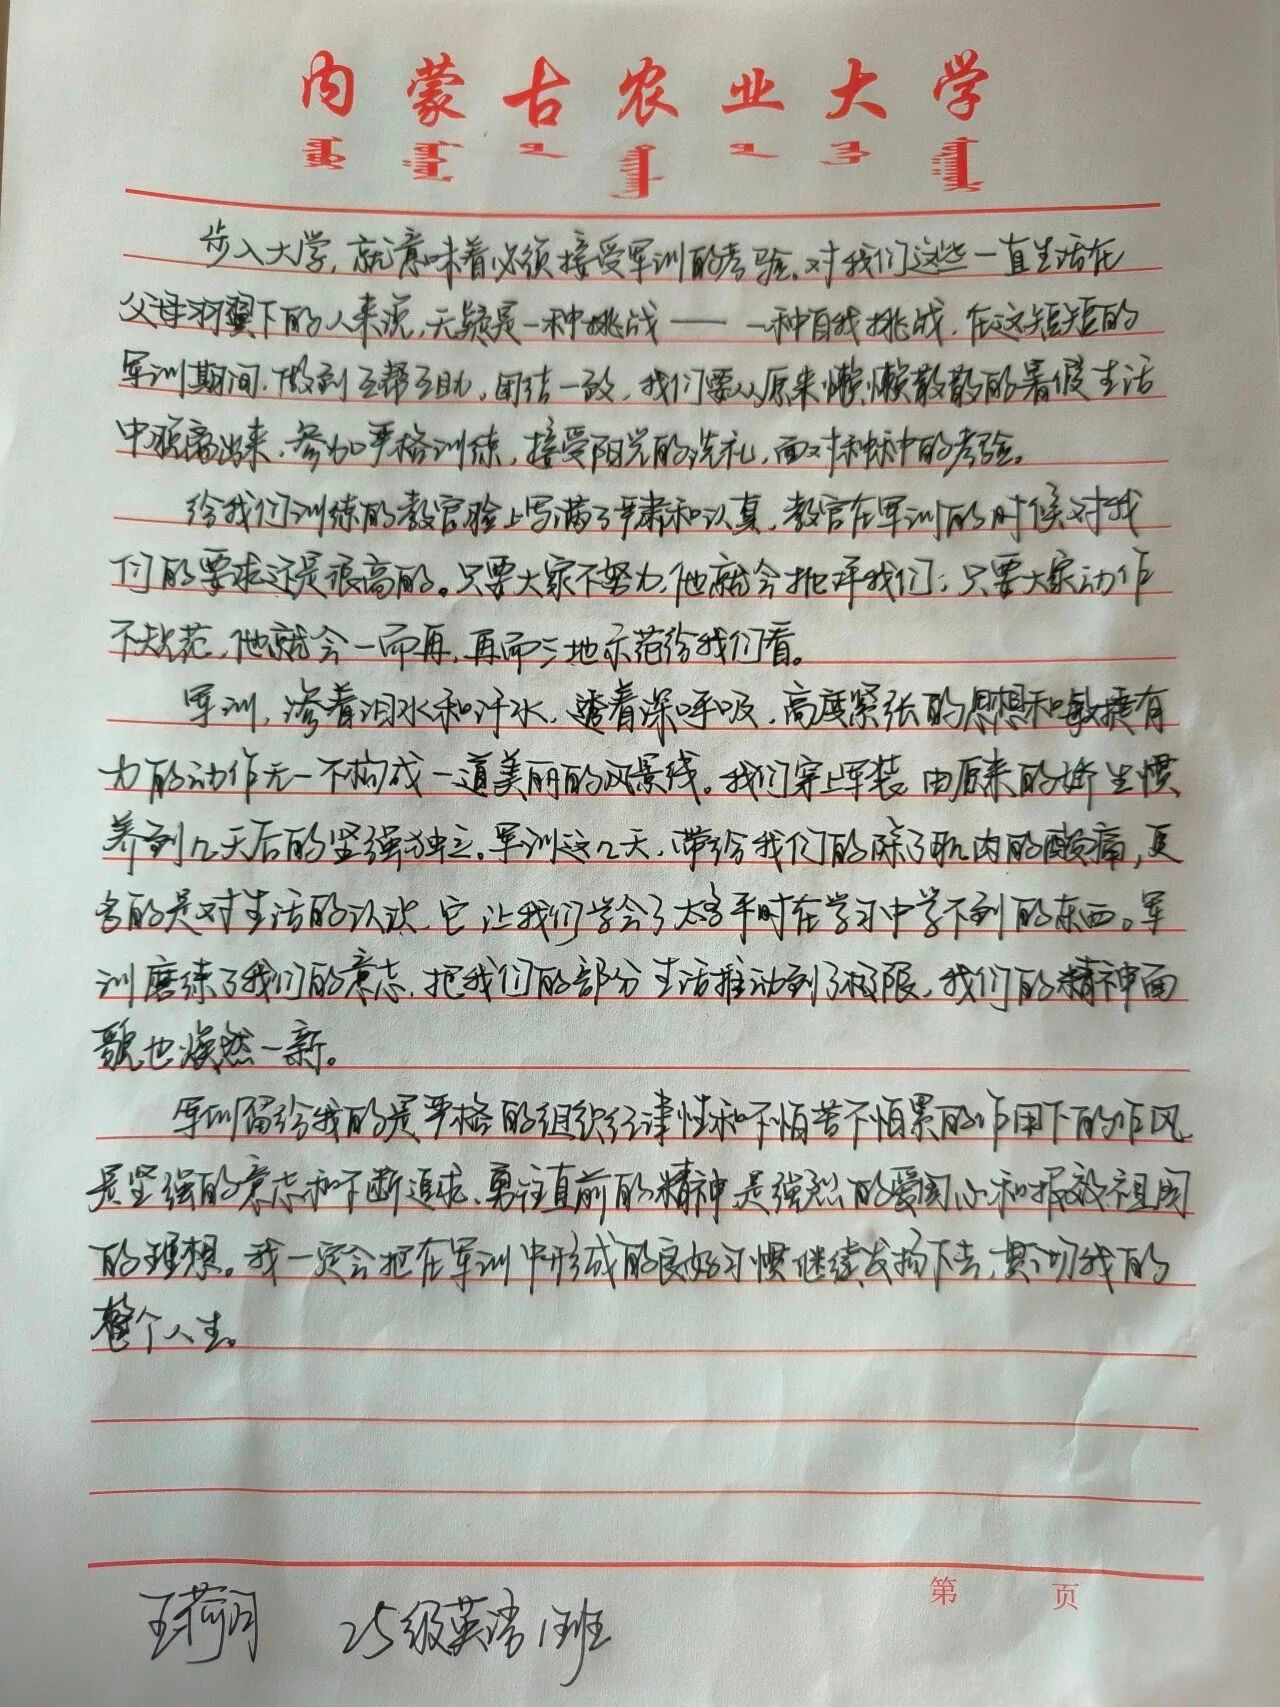 内蒙古农业大学
步入大学,就意味着必须接受军训的考验。对我们这些一直生活在
父母羽翼下的人来说,无疑是一种挑战——一种自我挑战。在这短短的
军训期间,做到互帮互助,团结一致,我们要从原来懒懒散散的暑假生活
中脱离出来,参加严格训练,接受阳光的洗礼,面对种种的考验。
给我们训练的教官脸上写满了严肃和认真,教官在军训的时候对我
们的要求还是很高的。只要大家不努力,他就会批评我们;只要大家动作
不规范,他就会一而再,再而三地示范给我们看。
军训,渗着泪水和汗水,透着深呼吸,高度紧张的思想和敏捷有
力的动作无一不构成一道美丽的风景线。我们穿上军装,由原来的娇生惯
养到几天后的坚强独立。军训这几天,带给我们的除了肌肉的酸痛,更
多的是对生活的认识,它让我们学会了太多平时在学习中学不到的东西。军
训磨练了我们的意志,把我们的部分生活推动到了极限,我们的精神面
貌也焕然一新。
军训留给我的是严格的组织纪律性和不怕苦不怕累的作用下的作风,
是坚强的意志和不断追求、勇往直前的精神,是强烈的爱国心和报效祖国
的理想。我一定会把在军训中形成的良好习惯继续发扬下去,贯彻我的
整个人生。
第 页
王荷月 25级英语1班